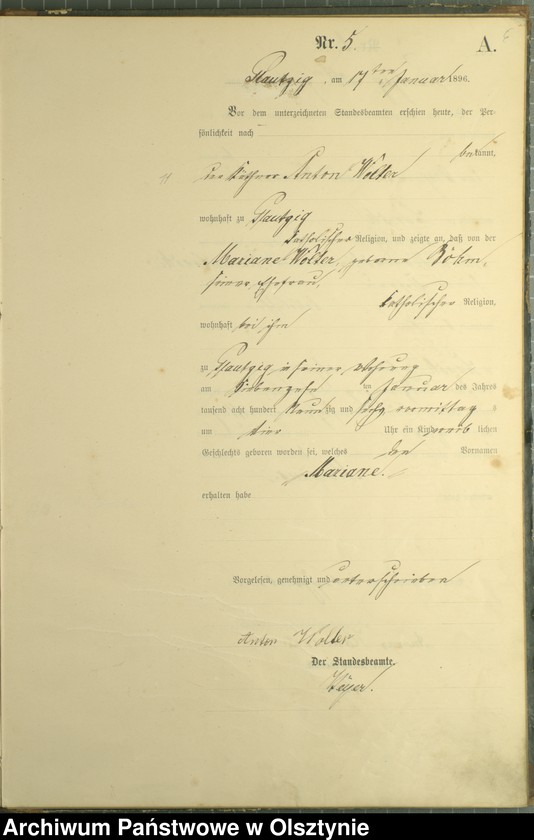 Nr. 5.
A.
Plautzig, am 17ten Januar 1896.
Vor dem unterzeichneten Standesbeamten erschien heute, der Per-
sönlichkeit nach
bekannt,
der Käthner Anton Wölter
wohnhaft zu Plautzig
katholischer Religion, und zeigte an, daß von der
Mariane Wölter, geborne Böhm,
seiner Ehefrau,
katholischer Religion,
wohnhaft bei ihm
zu Plautzig in seiner Wohnung
am siebenzehn ten Januar des Jahres
tausend acht hundert neunzig und sechs Vormittag s
um vier Uhr ein Kind weib lichen
Geschlechts geboren worden sei, welches den Vornamen
Mariane.
erhalten habe
Vorgelesen, genehmigt und unterschrieben
Anton Wolter
Der Standesbeamte.
Archiwum Państwowe w Olsztynie